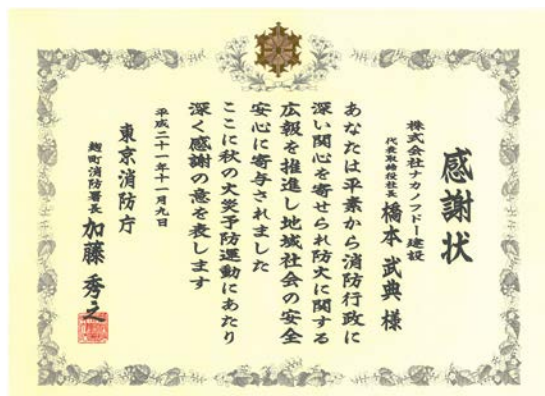 感謝状
株式会社ナカノフドー建設
代表取締役社長 橋本武典様
あなたは平素から消防行政に
深い関心を寄せられ防火に関する
広報を推進し地域社会の安全
安心に寄与されました
ここに秋の火災予防運動にあたり
深く感謝の意を表します
平成二十一年十一月九日
東京消防庁
麹町消防署長 加藤秀之